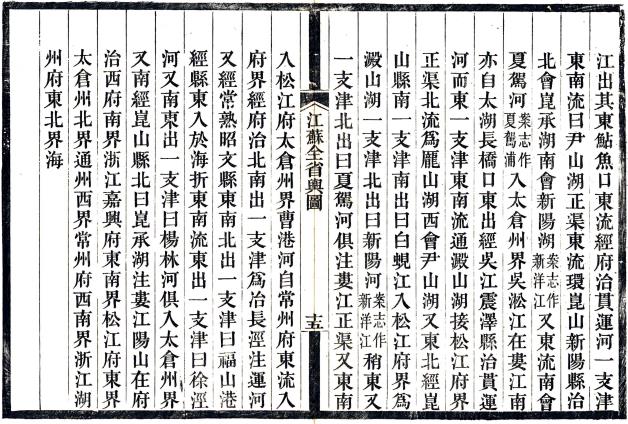 江出其東鮎魚口東流經府治貫運河一支津
東南流曰尹山湖正渠東流環崑山新陽縣治
北會崑承湖南會新陽湖案志作新洋江又東流南會
夏駕河案志作夏駕浦入太倉州界吳淞江在婁江南
亦自太湖長橋口東出經吳江震澤縣治貫運
河而東一支津東南流通澱山湖接松江府界
正渠北流爲龐山湖西會尹山湖又東北經崑
山縣南一支津南出曰白蜆江入松江府界爲
澱山湖一支津北出曰新陽河案志作新洋江稍東又
一支津北出曰夏駕河俱注婁江正渠又東南
江蘇全省輿圖
十五
入松江府太倉州界曹港河自常州府東流入
府界經府治北南出一支津爲冶長涇注運河
又經常熟昭文縣東南北出一支津曰福山港
經縣東入於海折東南流東出一支津曰徐涇
河又南東出一支津曰楊林河俱入太倉州界
又南經崑山縣北曰崑承湖注婁江陽山在府
治西府南界浙江嘉興府東南界松江府東界
太倉州北界通州西界常州府西南界浙江湖
州府東北界海